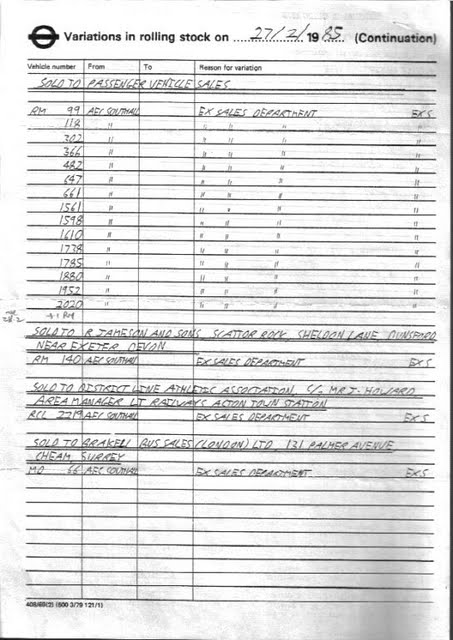 Variations in rolling stock on 27/2/ 1985 (Continuation)
Vehicle number From To Reason for variation
SOLD TO PASSENGER VEHICLE SALES
RM 99 AEC SOUTHALL EX SALES DEPARTMENT EX S
118 " " " "
302 " " " "
366 " " " "
482 " " " "
647 " " " "
661 " " " "
1561 " " " "
1598 " " " "
1610 " " " "
1738 " " " "
1785 " " " "
1880 " " " "
1952 " " " "
2020 " " " "
SOLD TO R JAMESON AND SONS, SCATTOR ROCK, SHELDON LANE DUNSFORD
NEAR EXETER DEVON
RM 140 AEC SOUTHALL EX SALES DEPARTMENT EX S
SOLD TO DISTRICT LINE ATHLETIC ASSOCIATION, C/- MR J. HOWARD
AREA MANAGER LT RAILWAYS ACTON TOWN STATION
RCL 2219 AEC SOUTHALL EX SALES DEPARTMENT EX S
SOLD TO BRAKELL BUS SALES (LONDON) LTD, 131 PALMER AVENUE
CHEAM SURREY
MD 66 AEC SOUTHALL EX SALES DEPARTMENT EX S